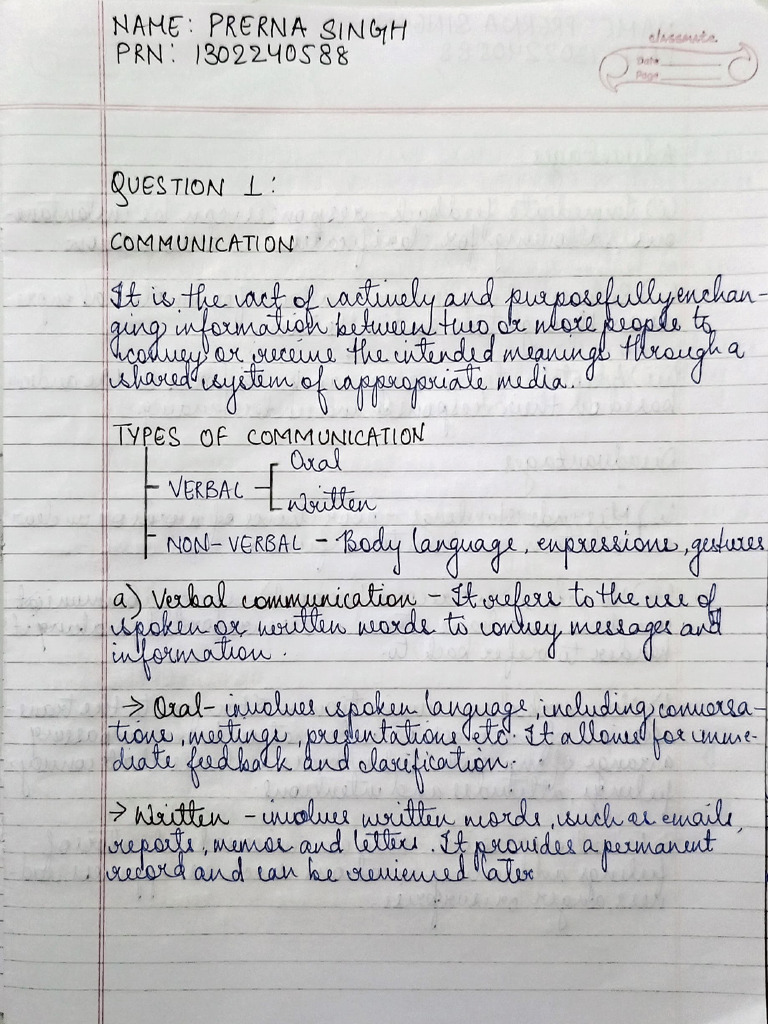 NAME: PRERNA SINGH
PRN: 1302240588
classmate
Date
Page
QUESTION 1:
COMMUNICATION
It is the act of actively and purposefully enchan-
ging information between two or more people to
convey or receive the intended meanings through a
shared system of appropriate media.
TYPES OF COMMUNICATION
Oral
VERBAL
Written
NON-VERBAL - Body language, expressions, gestures
a) Verbal communication - It refers to the use of
spoken or written words to convey messages and
information.
→ Oral - involves spoken language, including conversa-
tions, meetings, presentations etc. It allows for imme-
diate feedback and clarification.
→ Written - involves written words, such as emails,
reports, memos and letters. It provides a permanent
record and can be reviewed later